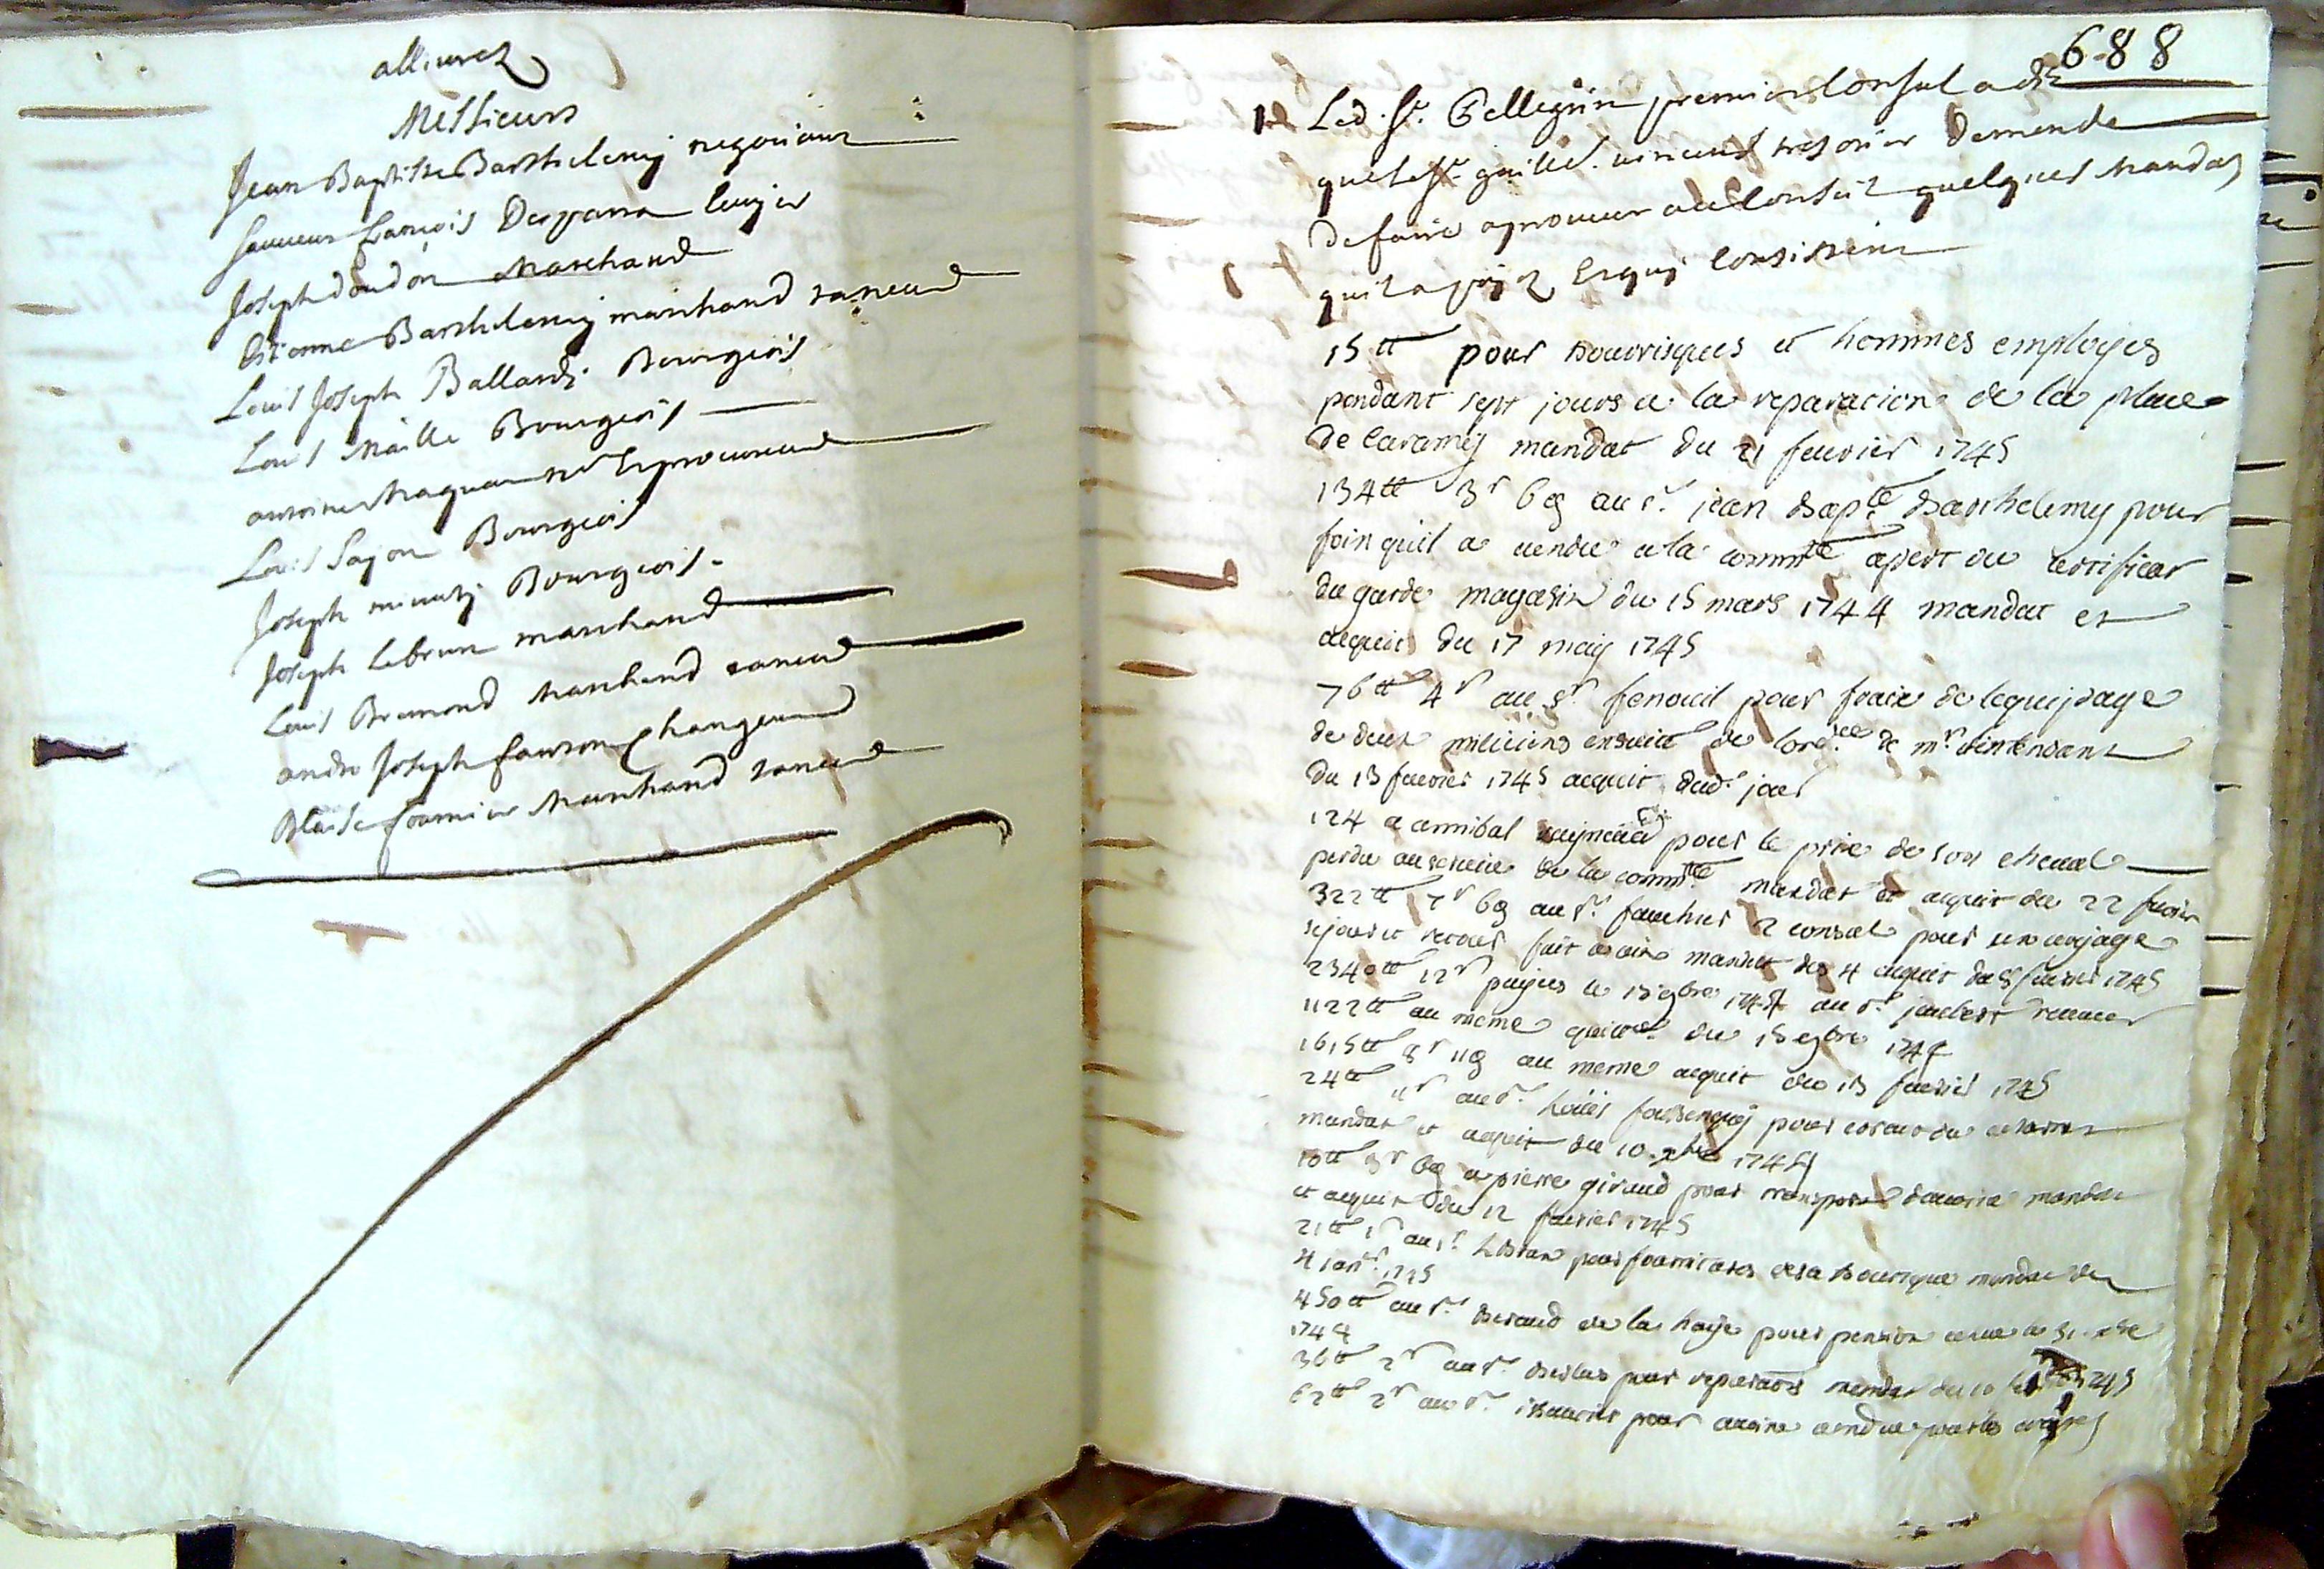 allivrez
Messieurs
Jean Baptiste Barthelemy negociant
Sauveur françois Desparra
Joseph doudon Marchand
Etienne Barthelemy marchand taneur
Louis Joseph Ballardy Bourgeois
Louis Maille Bourgeois
antoine Maquan no.re Et procureur
Louis Sajou Bourgeois
Joseph minuty Bourgeois.
Joseph lebrun marchand
Louis Bremond Marchand taneur
andre Joseph
Blaise fournier Marchand taneur
688
1e Led. Sr. Pellegrin premier Consul a dit
que le Sr. guille. vincens tresorier Demende
de faire aprouver au Conseil quelques Mandas
quil a payez Et quy Consistent
15 tt pour bourriques et hommes employes
pendant sept jours a la reparation de la place
de Caramy mandat du 21 feuvrier 1745
134 tt 3 s 6 d au sr. jean bapte. barthelemy pour
foin quil a vendu a la commte. apert du certificat
du garde magasin du 15 mars 1744 mandat et
acquit du 17 may 1745
76 tt 4 s au sr. fenouil pour fraix de lequipage
de deux miliciens ensuite de lordce. de mr. lintendant
du 13 feuvrier 1745 acquit dud. jour
124 a annibal pour le prix de son cheval
perdu au service de la commte. mandat et acquit du 22 fevrier
322 tt 7 s 6 d au sr. faucher 2 consul pour un voyage
sejour et retour fait a aix mandat des 4 acquit du 5 fevrier 1745
2340 tt 12 s payes le 15 9bre 1744 au sr. jaubert receveur
1122 tt au meme quitce. du 15 9bre 1744
1615 tt 8 s 11 d au meme acquit du 13 fevrier 1745
24 tt 11 s au sr. pour
mandat et acquit du 10 1744
10 tt 3 s 6 d a pierre giraud pour transport mandat
et acquit du 12 fevrier 1745
21 tt 1 s au sr. lebrun pour fournitures de sa boutique mandat du
4 janr. 1745
450 tt au sr. beraud de la haye pour pension
1744
36 tt 2 s au sr. pour reparaons mandat du 10 1745
62 tt 2 s au sr. pour avoine vendue pour les